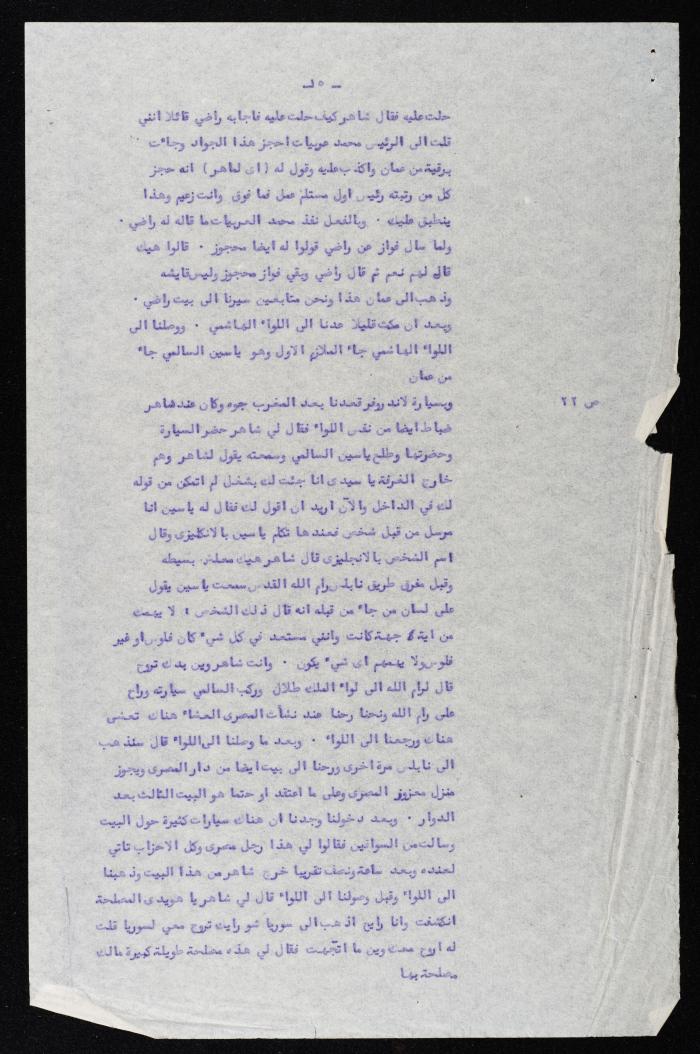 ـ ١٥ ـ
حلت عليه فقال شاهر كيف حلت عليه فاجابه راضي قائلا انني
قلت الى الرئيس محمد عربيات احجز هذا الجواد وجاءت
برقية من عمان واكذب عليه وقول له ( اى لماهر ) انه حجز
كل من رتبته رئيس اول مستلم عمل فما فوق وانت زعيم وهذا
ينطبق عليك . وبالفعل نفذ محمد العربيات ما قاله له راضي .
ولما سال فواز عن راضي قولوا له ايضا محجوز . قالوا هيك
قال لهم نعم ثم قال راضي وبقي فواز محجوز وليس قايشه
وذهب الى عمان هذا ونحن متابعين سيرنا الى بيت راضي .
وبعد ان مكث قليلا عدنا الى اللواء الهاشمي . ووصلنا الى
اللواء الهاشمي جاء الملازم الاول وهو ياسين السالمي جاء
من عمان
ص ٢٢
وبسيارة لاندروفر قعدنا بعد المغرب جوه وكان عند شاهر
ضباط ايضا من نفس اللواء فقال لي شاهر حضر السيارة
وحضرتها وطلع ياسين السالمي وسمعته يقول لشاهر وهم
خارج الغرفة يا سيدى انا جئت لك بشغل لم اتمكن من قوله
لك في الداخل والآن اريد ان اقول لك فقال له ياسين انا
مرسل من قبل شخص فعندها تكلم ياسين بالانكليزى وقال
اسم الشخص بالانجليزى قال شاهر هيك معلش بسيطه
وقبل مفرق طريق نابلس رام الله القدس سمعت ياسين يقول
على لسان من جاء من قبله انه قال ذلك الشخص : لا يهمك
من اية جهة كانت وانني مستعد في كل شيء كان فلوس او غير
فلوس ولا يهمهم اى شيء يكون . وانت شاهر وين بدك تروح
قال لرام الله الى لواء الملك طلال وركب السالمي سيارته وراح
على رام الله ونحنا رحنا عند نشأت المصرى العشاء هناك تعشى
هناك ورجعنا الى اللواء . وبعد ما وصلنا الى اللواء قال سنذهب
الى نابلس مرة اخرى ورحنا الى بيت ايضا من دار المصرى ويجوز
منزل معزوز المصرى وعلى ما اعتقد او حتما هو البيت الثالث بعد
الدوار . وبعد دخولنا وجدنا ان هناك سيارات كثيرة حول البيت
وسالت من السواقين فقالوا لي هذا رجل مصرى وكل الاحزاب تاتي
لعنده وبعد ساعة ونصف تقريبا خرج شاهر من هذا البيت وذهبنا
الى اللواء وقبل وصولنا الى اللواء قال لي شاهر يا هويدى المصلحة
انكشفت وانا رايح اذهب الى سوريا شو رايك تروح معي لسوريا قلت
له اروح معك وين ما اتجهت فقال لي هذه مصلحة طويلة كبيرة مالك
مصلحة بها